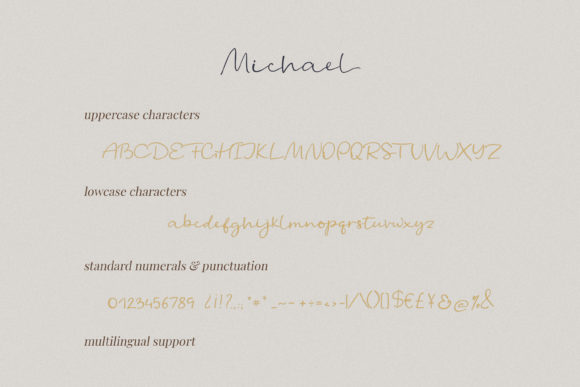 Michael
uppercase characters
ABCDEFGHIJKLMNOPQRSTUVWXYZ
lowcase characters
abcdefghijklmnopqrstuvwxyz
standard numerals & punctuation
0123456789 ¿¡!?.,:;"*#° _–~ +÷=<>-|/\()[]$€£¥&@%&
multilingual support